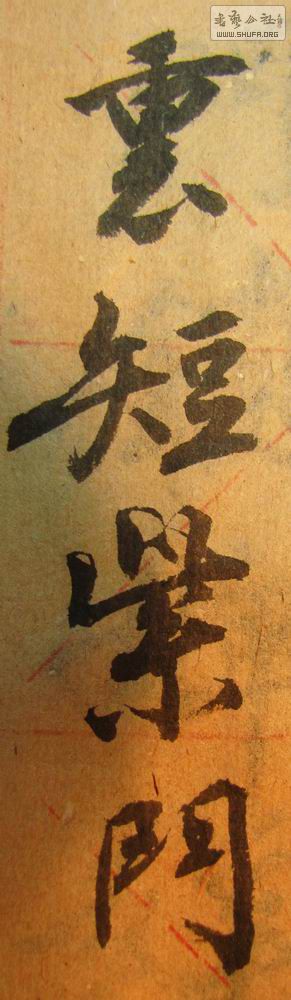 書藝公社
WWW.SHUFA.ORG
裏短柴門